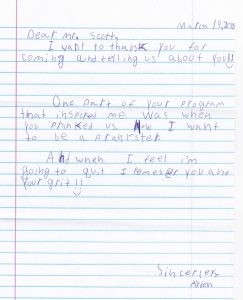 March 19, 2018
Dear Mrs. Scott,
I want to thank you for
coming and telling us about you!!
One part of your program
that inspires me was when
you pranked us. Now I want
to be a prankster.
And when I feel i'm
going to quit I remeber you and
your grit!!
Sincerely,